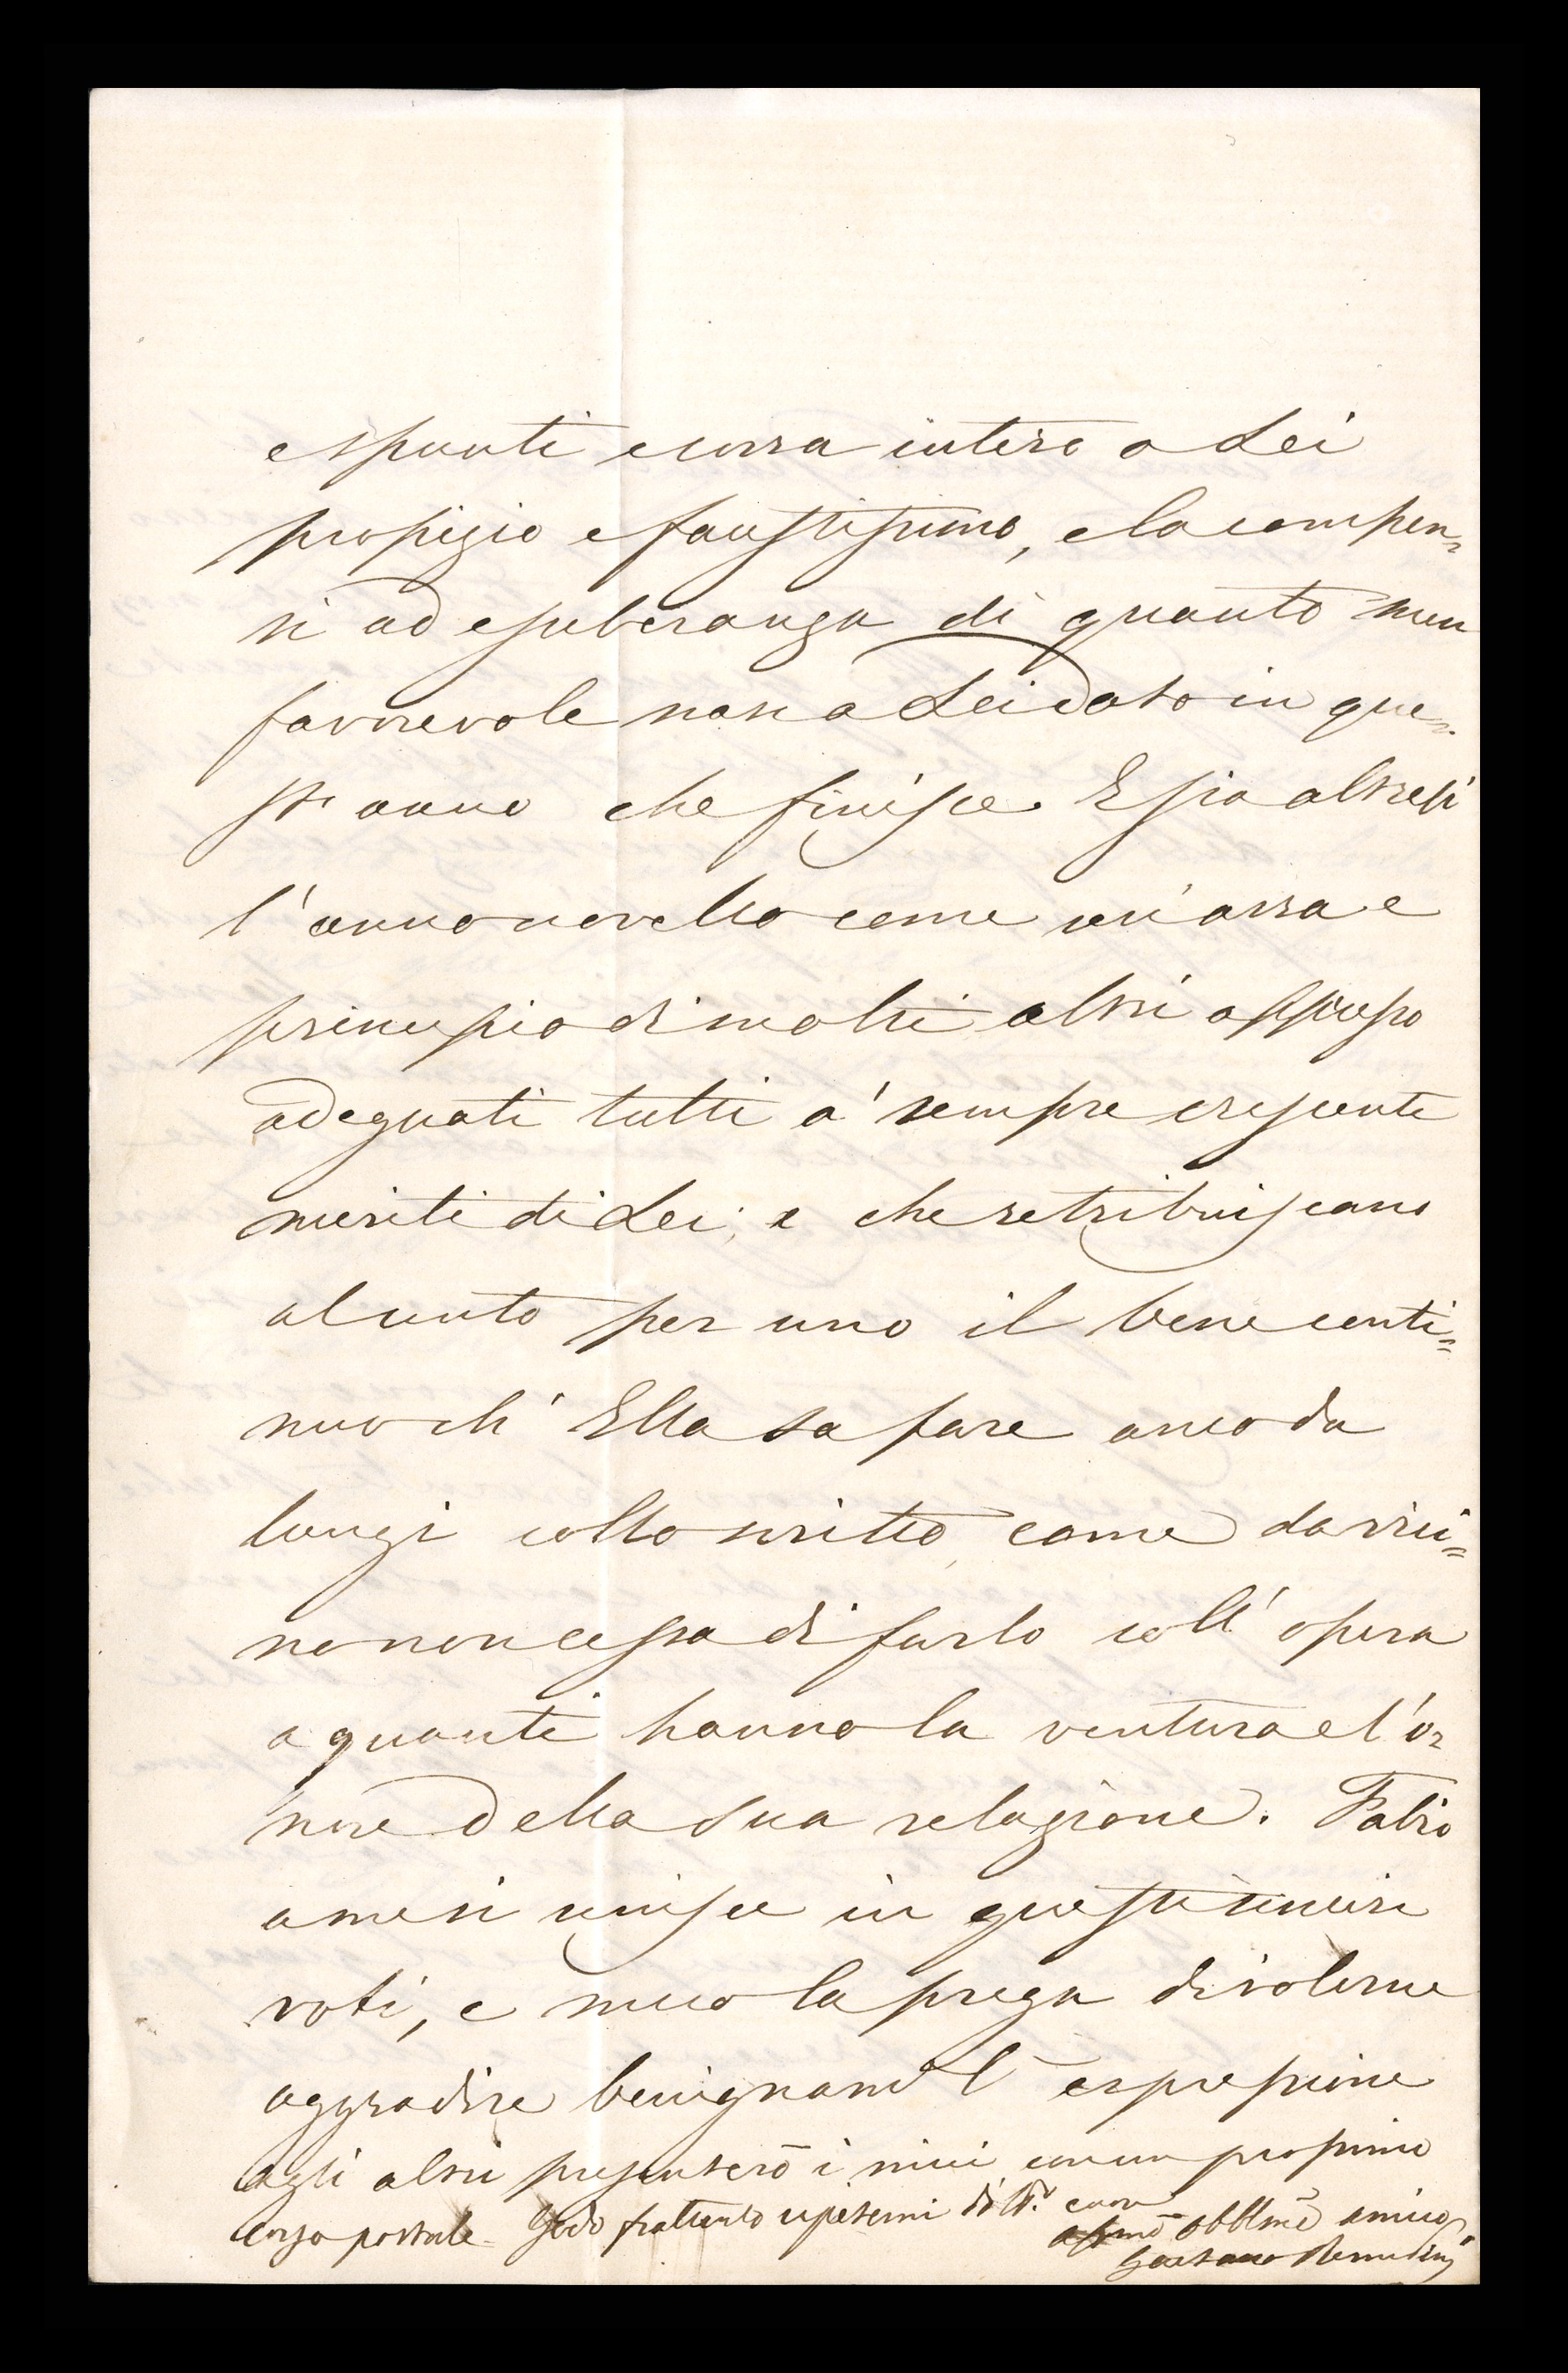 e spunti e corra intero a Lei
propizio e faustissimo, e la compen=
si ad esuberanza di quanto men
favorevole non a Lei dato in que=
st' anno che finisce. E sia altresì
l'anno novello come un'arra e
principio di molti altri appresso
adeguati tutti a' sempre crescenti
meriti di Lei; e che retribuiscano
al cento per uno il bene conti=
nuo ch' Ella sa fare anco da
lungi collo scritto, come da vici=
no non cessa di farlo coll' opera
a quanti hanno la ventura e l'o=
nore della Sua relazione. Fabio
a me si unisce in questi sinceri
voti, e meco la prega di volerne
aggradire benignam̃ l' espressione
Agli altri presenterò i miei con un prossimo
corso postale. Godo frattanto ripetermi di
obblm̃o amico
Gaetano